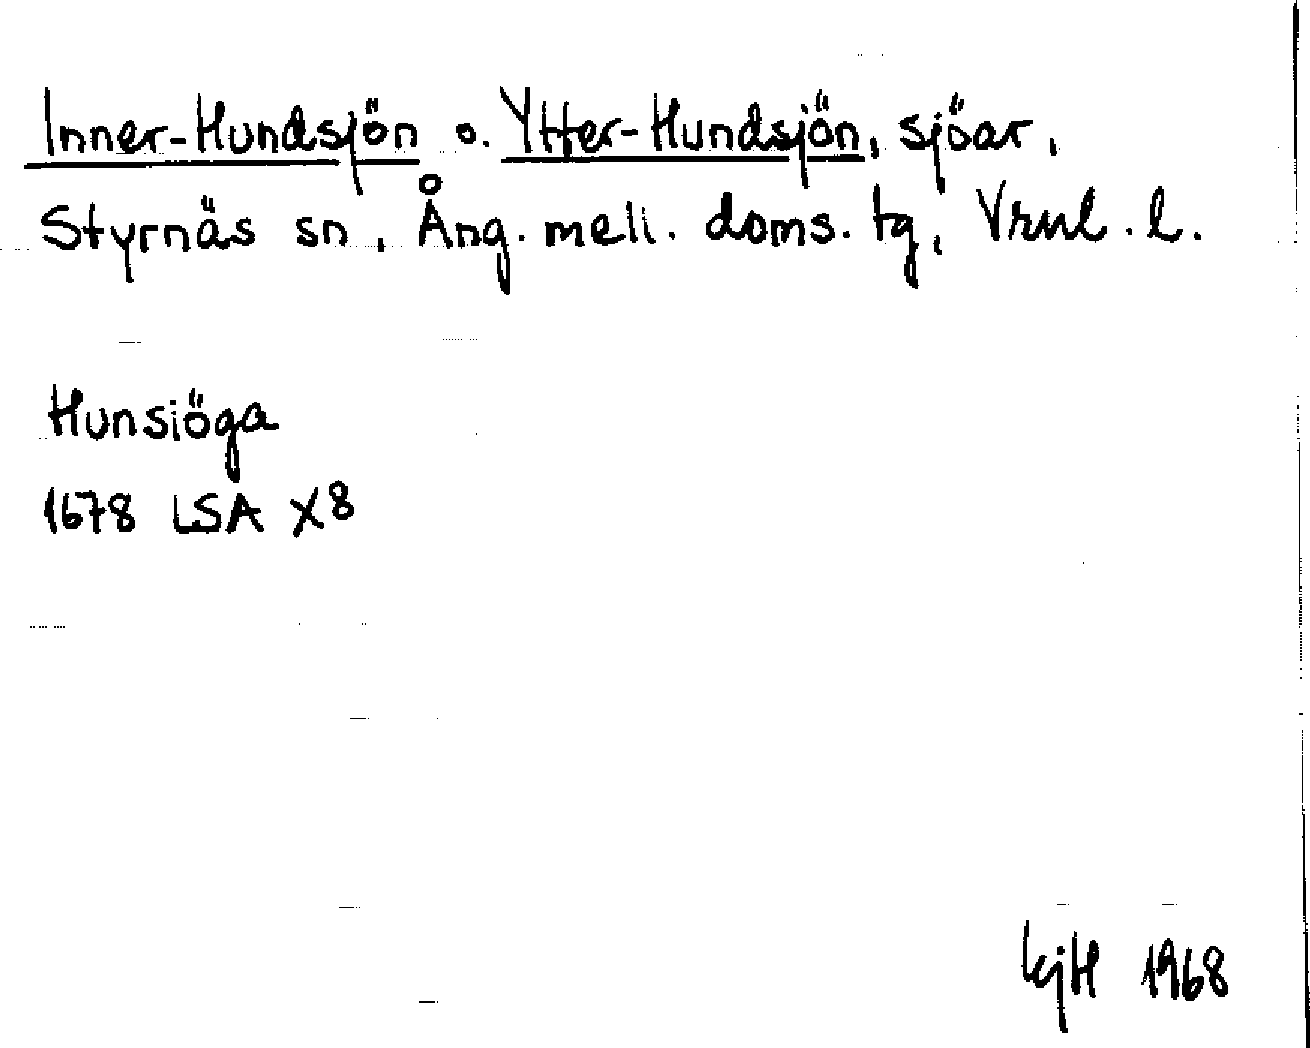 Inner-Hundsjön o. Ytter-Hundsjön, sjöar,
Styrnäs sn, Ång. mell. doms. tg, Vrnl. l.
Hunsiöga
1678 LSA X8
kjH 1968